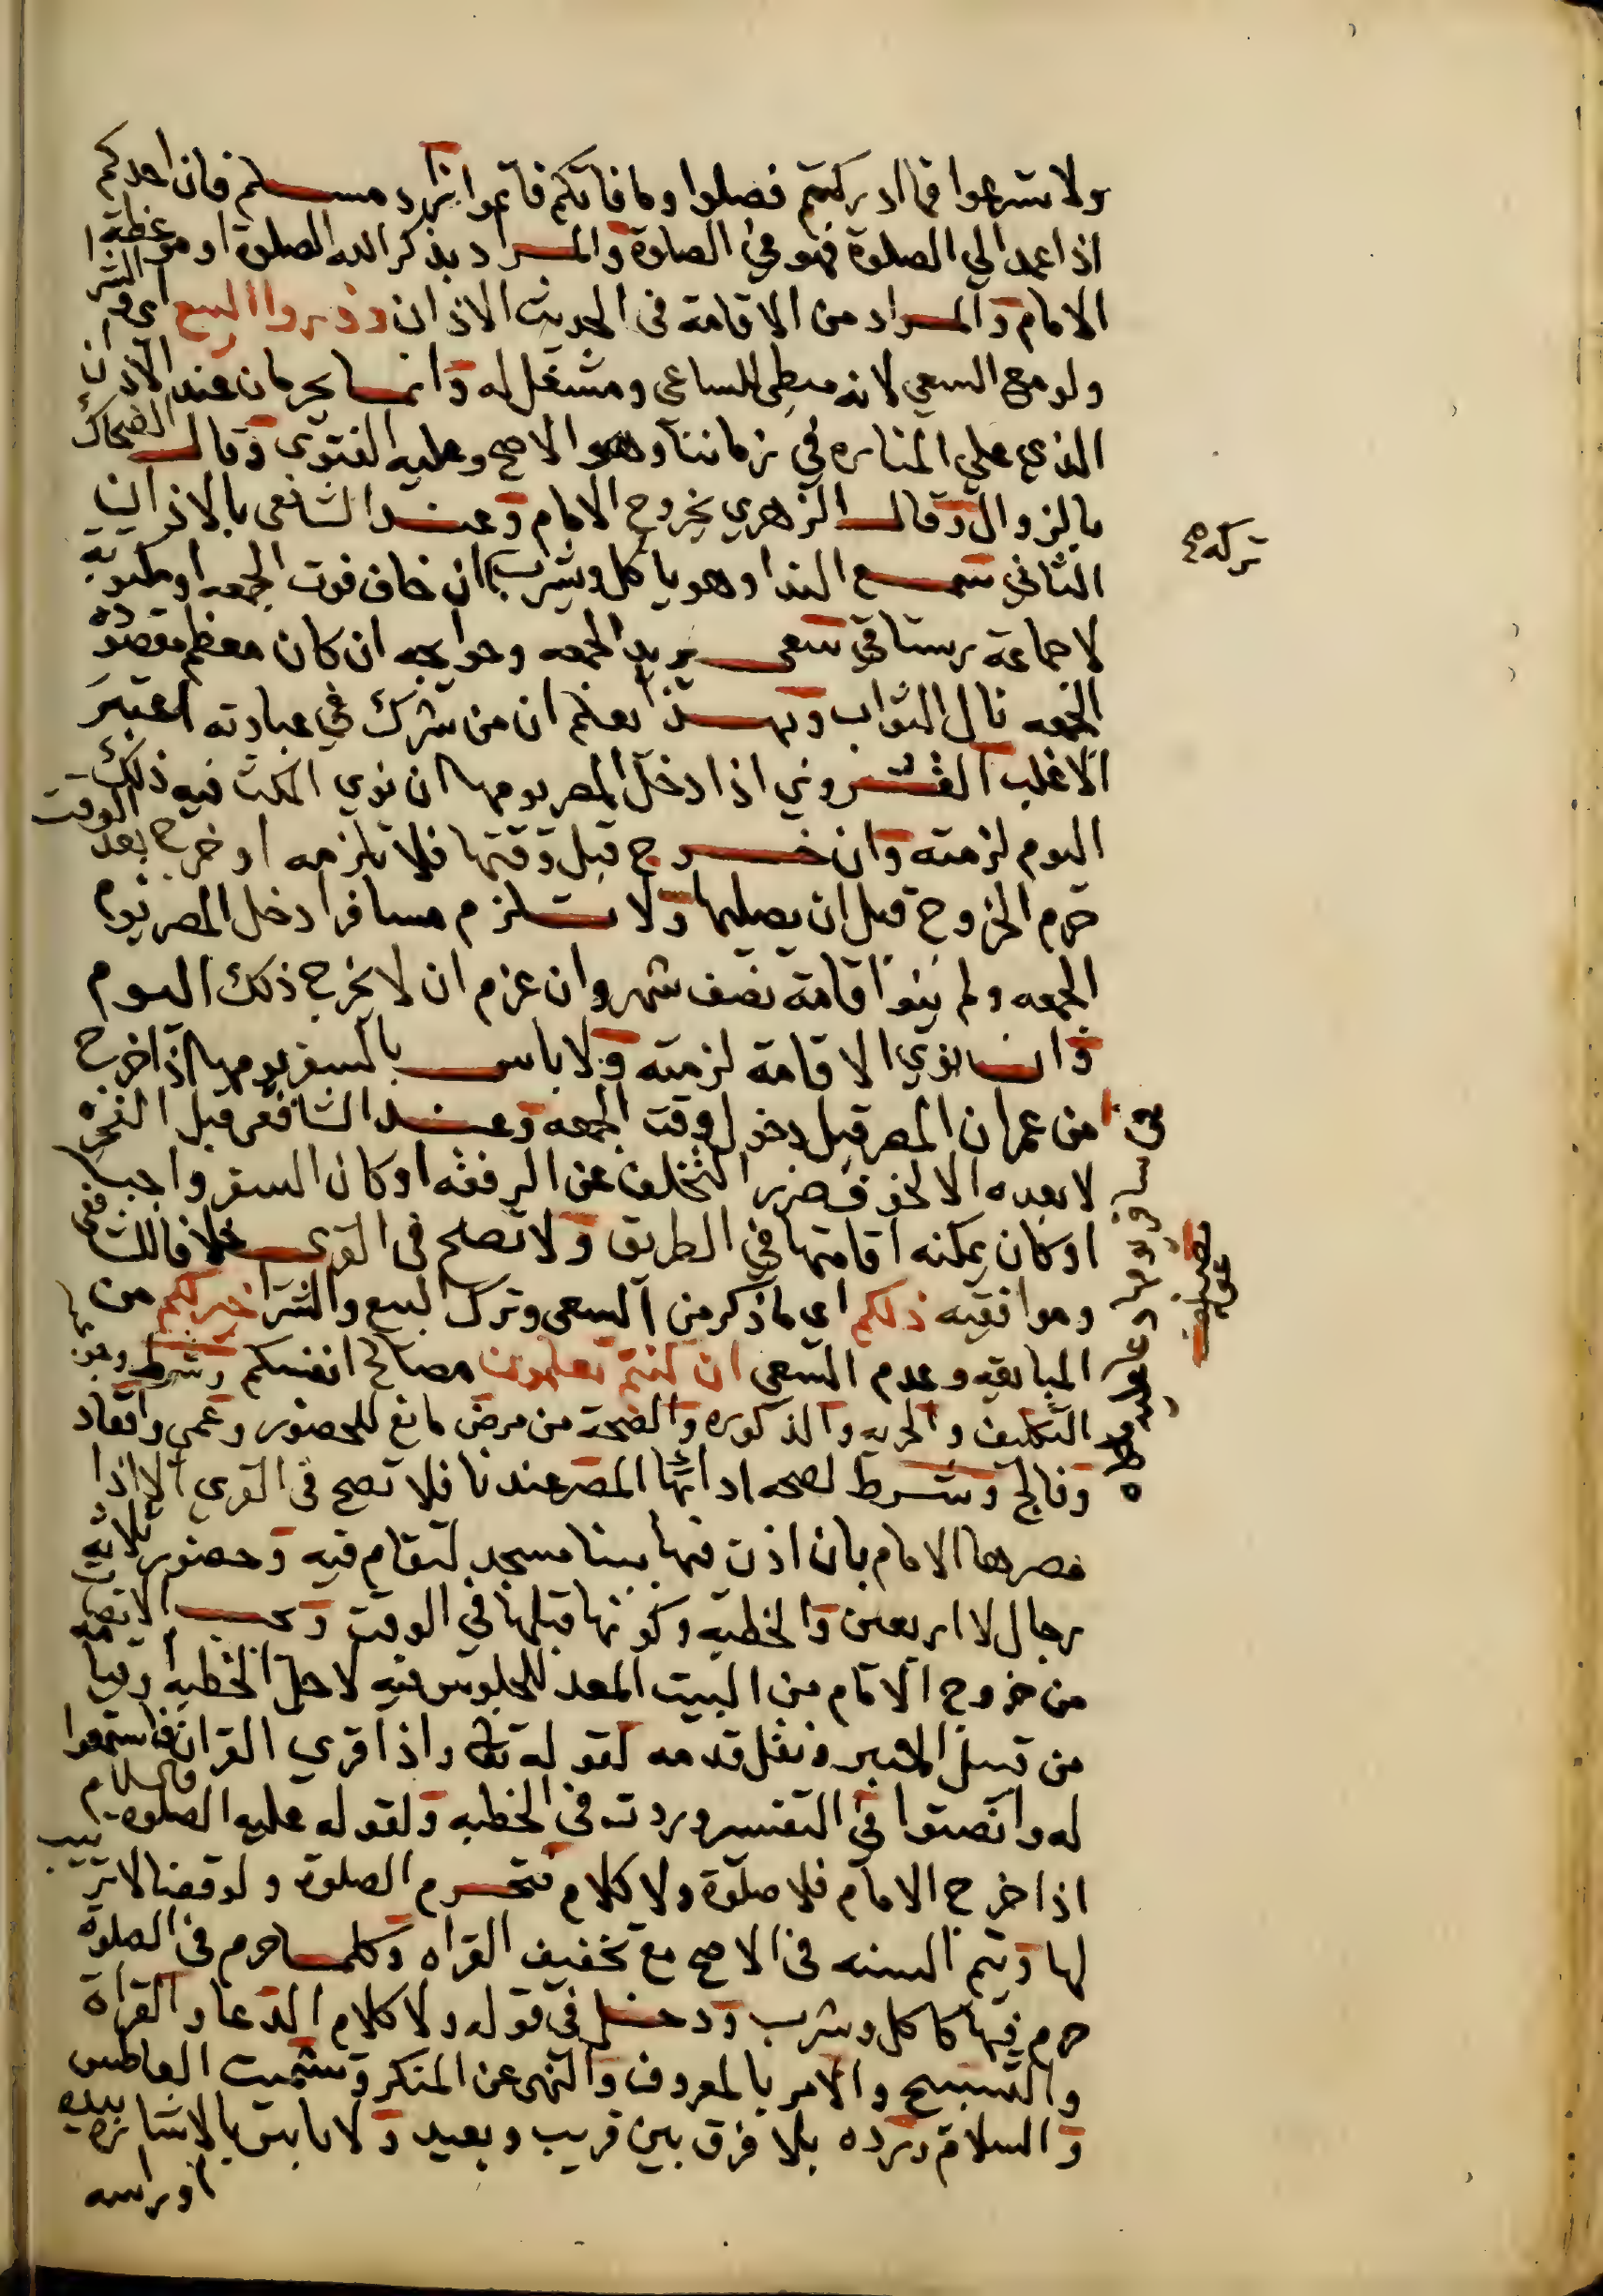 ولا تسرعوا فما ادركتم فصلوا وما فاتكم فاتموا زاد مسلم فان احدكم
اذا عمد الي الصلوة فهو في الصلوة والمراد بذكر الله الصلوة او موعظة
الامام والمراد من الاقامة فى الحديث الاذان وذروا البيع اى والشرا
ولو مع السعي لانه مبطى للساعى ومشغل له وانما يحرمان عند الاذان
الذي علي المناره في زماننا وهو الاصح وعليه الفتوى وقال الضحاك
بالزوال وقال الزهري بخروج الامام وعند الشافعى بالاذان
الثاني سمع الندا وهو ياكل ويشرب تركه ان خاف فوت الجمعه او مكتوبة
لا جماعة رستاقي سعى يريد الجمعه وحوايجه ان كان معظم مقصوده
الجمعه نال الثواب وبهذا يعلم ان من شرك في عبادته اعتبر
الاغلب القروي اذا دخل المصر يومها ان نوي المكث فيه ذلك
اليوم لزمته وان خرج قبل وقتها فلا تلزمه او خرج بعد الوقت
حرم الخروج قبل ان يصليها ولا تلزم مسافرا دخل المصر يوم
الجمعه ولم ينو اقامة نصف شهر وان عزم ان لا يخرج ذلك اليوم
وان نوي الاقامة لزمته ولا باس بالسفر يومها اذا خرج
من عمران المصر قبل دخول وقت الجمعه وعند الشافعى قبل الفجر
لا بعده الا لخوف ضرر التخلف عن الرفقه او كان السفر واجبا
او كان يمكنه اقامتها في الطريق ولا تصلح فى القرى خلافا للشافعى
وموافقيه ذلكم اي ما ذكر من السعى وترك البيع والشرا خير لكم من
المبايعه وعدم السعي ان كنتم تعلمون مصالح انفسكم وشرط
التكليف والحريه والذكوره والصحة من مرض مانع للحضور وعمي واقعاد
وفالج وشرط لصحه ادائها المصر عندنا فلا تصح فى القرى الا اذا
مصرها الامام بان اذن فيها ببنا مسجد لتقام فيه وحضور ثلاثة
رجال لا اربعين والخطبه وكونها قبلها في الوقت ويجب الانصات
من خروج الامام من البيت المعد للجلوس فيه لاجل الخطبه او قيامه
من قبل المنبر ونقل قدمه لقوله تعالى واذا قري القران فاستمعوا
له وانصتوا فى التفسير وردت فى الخطبه ولقوله عليه الصلوه والسلام
اذا خرج الامام فلا صلوة ولا كلام فتحرم الصلوة ولو قضا لا ترتيب
لها ويتم السنه فى الاصح مع تخفيف القراه وكلما حرم فى الصلوة
حرم فيها كاكل وشرب ودخل فى قوله ولا كلام الدعا والقراة
والتسبيح والامر بالمعروف والنهى عن المنكر وتشميت العاطس
والسلام ورده بلا فرق بين قريب وبعيد ولا باس بالاشارة بيده
او راسه
تركه